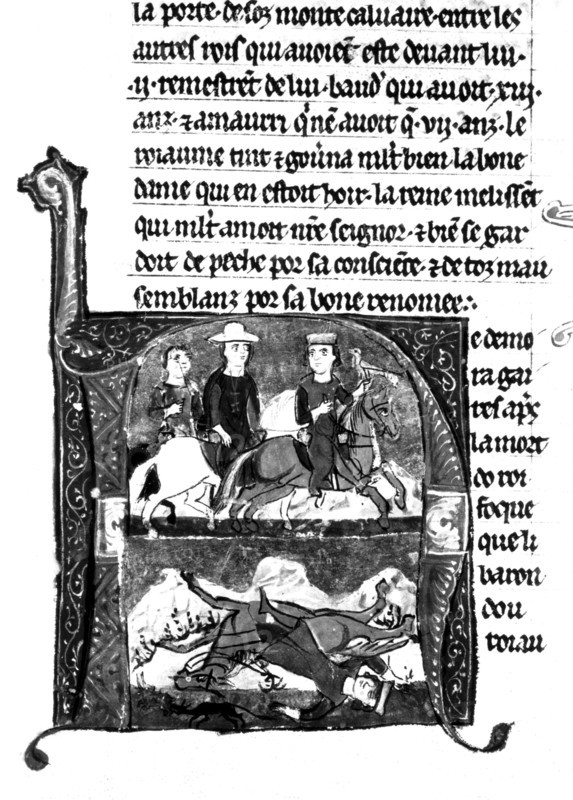 la porte de soz monte caluaire entre les
autres rois qui auoiẽt este deuant lui ·
·ij· remestrẽt de lui · baud' qui auoit ·xiij·
anz · ⁊ amaurri q̃ nẽ auoit q̃ ·vij· anz · le
roiaume tint ⁊ gouẽna ml't bien la bone
dame qui en estoit hoir · la reine melissẽt
qui ml't amoit nr̃e seignor · ⁊ biẽ se gar
doit de peche por sa consciẽce · ⁊ de toz mau
semblanz por sa bone renomee ·
e demo
ra gai
res ap̃s
la mort
do roi
foque
que li
baron
dou
roiau